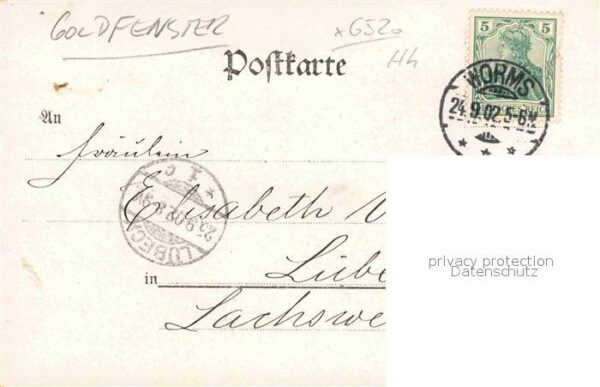 GOLDFENSTER
x6520
HH
Postkarte
5
WORMS
24.9.02.5-6N.
An
Fräulein
1. c
25.9.02.8-9V
LÜBECK
Elisabeth
in
Lübe
Lachswe
privacy protection
Datenschutz